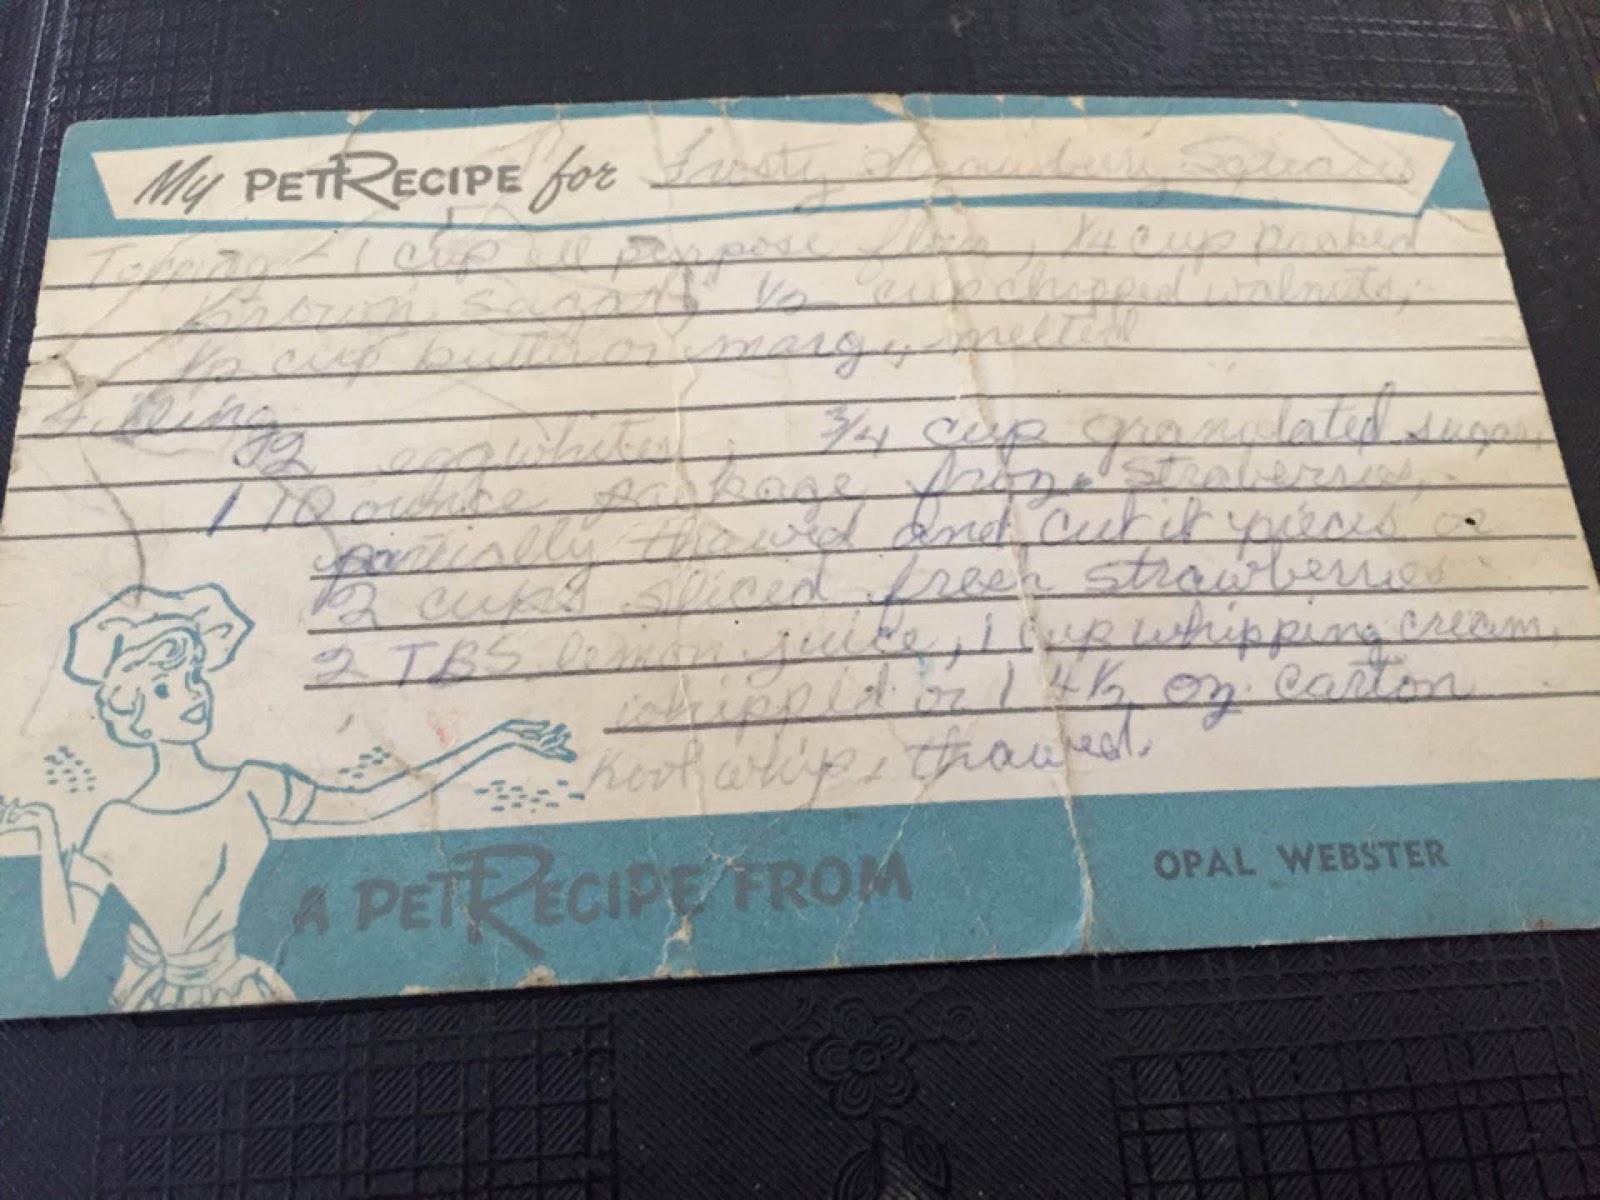 My PET RECIPE for Frosty Strawberry Squares
Topping - 1 cup all purpose flour, 1/4 cup packed
brown sugar, 1/2 cup chopped walnuts,
1/2 cup butter or marg., melted
Filling
2 egg whites, 3/4 cup granulated sugar,
1 10 ounce package froz. straberries,
partially thawed and cut it pieces or
2 cups sliced fresh strawberries
2 TBS lemon juice, 1 cup whipping cream,
whipped or 1 4 1/2 oz carton
Kool whip, thawed.
A PET RECIPE FROM
OPAL WEBSTER